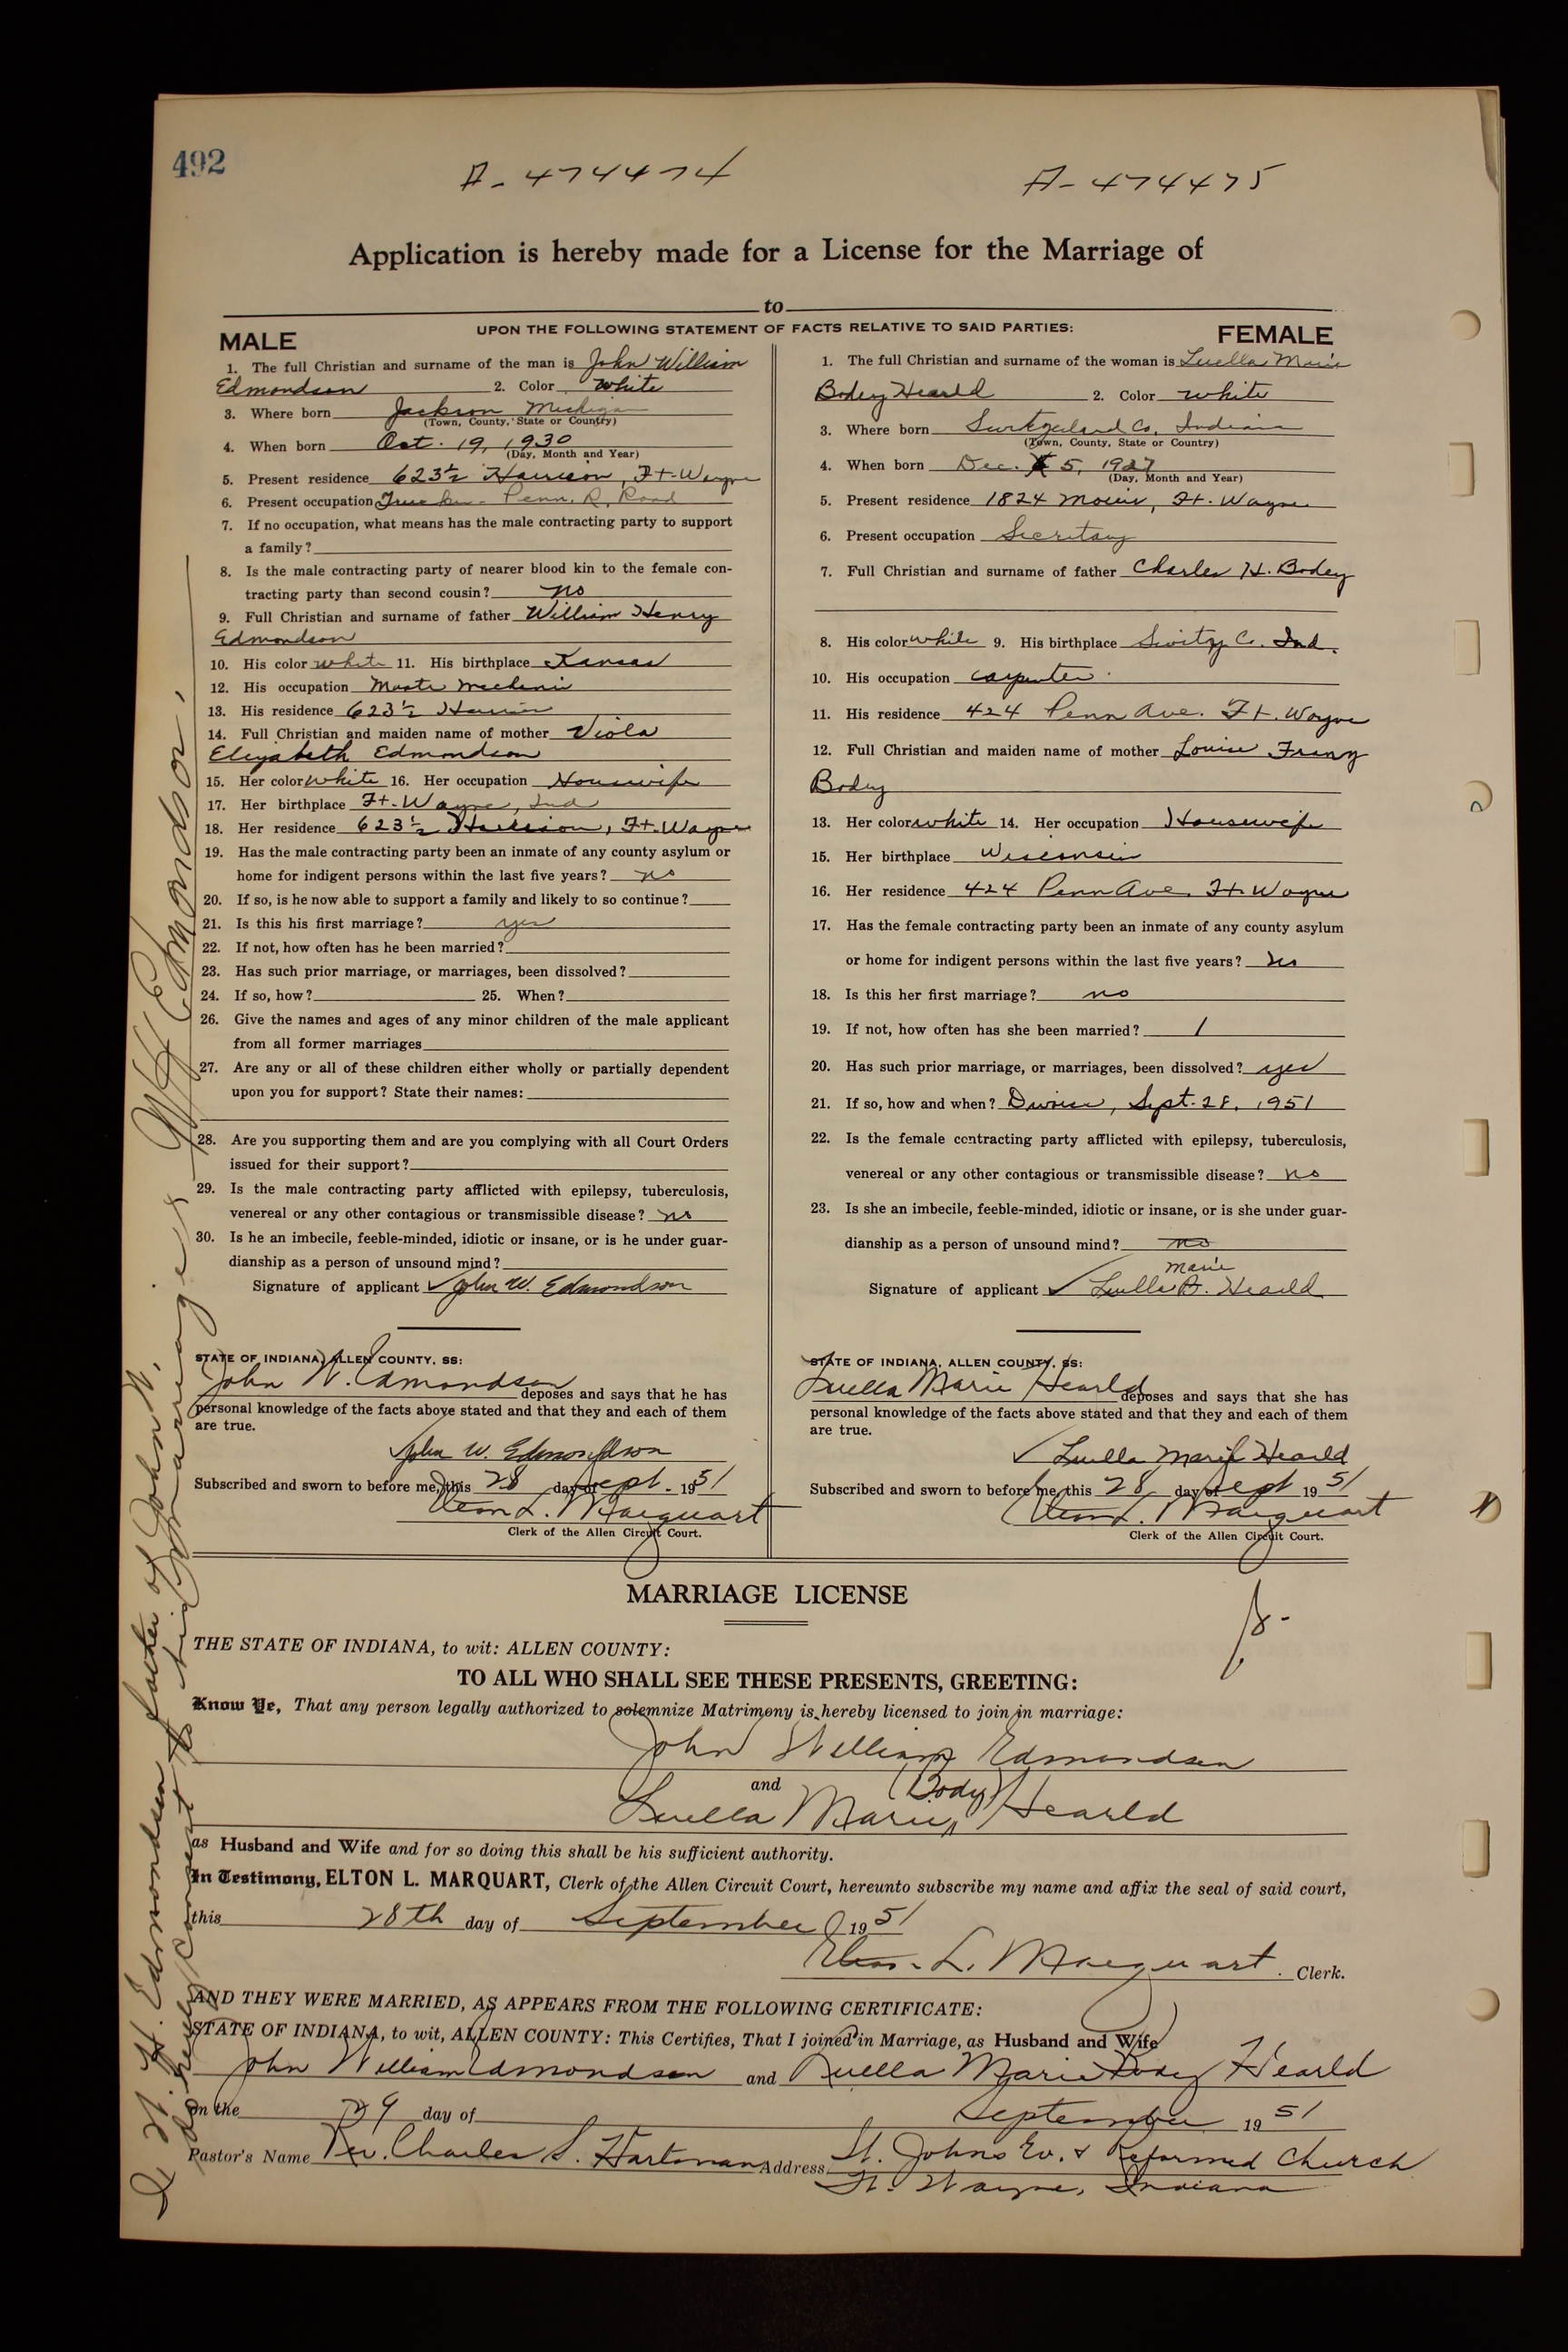 492
A-474474 A-474475
Application is hereby made for a License for the Marriage of
to
UPON THE FOLLOWING STATEMENT OF FACTS RELATIVE TO SAID PARTIES:
MALE
1. The full Christian and surname of the man is John William
Edmondson 2. Color White
3. Where born Jackson Michigan
(Town, County, State or Country)
4. When born Oct. 19, 1930
(Day, Month and Year)
5. Present residence 623½ Harrison, Ft. Wayne
6. Present occupation Penn. R. Road
7. If no occupation, what means has the male contracting party to support
a family?
8. Is the male contracting party of nearer blood kin to the female con-
tracting party than second cousin? no
9. Full Christian and surname of father William Henry
Edmondson
10. His color white 11. His birthplace Kansas
12. His occupation Master Mechanic
13. His residence 623½ Harrison
14. Full Christian and maiden name of mother Viola
Elizabeth Edmondson
15. Her color white 16. Her occupation Housewife
17. Her birthplace Ft. Wayne, Ind
18. Her residence 623½ Harrison, Ft. Wayne
19. Has the male contracting party been an inmate of any county asylum or
home for indigent persons within the last five years? no
20. If so, is he now able to support a family and likely to so continue?
21. Is this his first marriage? yes
22. If not, how often has he been married?
23. Has such prior marriage, or marriages, been dissolved?
24. If so, how? 25. When?
26. Give the names and ages of any minor children of the male applicant
from all former marriages
27. Are any or all of these children either wholly or partially dependent
upon you for support? State their names:
28. Are you supporting them and are you complying with all Court Orders
issued for their support?
29. Is the male contracting party afflicted with epilepsy, tuberculosis,
venereal or any other contagious or transmissible disease? no
30. Is he an imbecile, feeble-minded, idiotic or insane, or is he under guar-
dianship as a person of unsound mind?
Signature of applicant ✓ John W. Edmondson
STATE OF INDIANA, ALLEN COUNTY, SS:
John W. Edmondson deposes and says that he has
personal knowledge of the facts above stated and that they and each of them
are true.
John W. Edmondson
Subscribed and sworn to before me, this 28 day of Sept. 1951
Elton L. Marquart
Clerk of the Allen Circuit Court.
FEMALE
1. The full Christian and surname of the woman is Luella Marie
Bodey Heareld 2. Color white
3. Where born Switzerland Co. Indiana
(Town, County, State or Country)
4. When born Dec. 5, 1927
(Day, Month and Year)
5. Present residence 1824 Ft. Wayne
6. Present occupation Secretary
7. Full Christian and surname of father Charles H. Bodey
8. His color white 9. His birthplace Switz Co. Ind.
10. His occupation carpenter
11. His residence 424 Penn Ave. Ft. Wayne
12. Full Christian and maiden name of mother Louise Franz
Bodey
13. Her color white 14. Her occupation Housewife
15. Her birthplace Wisconsin
16. Her residence 424 Penn Ave. Ft. Wayne
17. Has the female contracting party been an inmate of any county asylum
or home for indigent persons within the last five years? no
18. Is this her first marriage? no
19. If not, how often has she been married? 1
20. Has such prior marriage, or marriages, been dissolved? yes
21. If so, how and when? Divorce, Sept. 28, 1951
22. Is the female contracting party afflicted with epilepsy, tuberculosis,
venereal or any other contagious or transmissible disease? no
23. Is she an imbecile, feeble-minded, idiotic or insane, or is she under guar-
dianship as a person of unsound mind? no
Marie
Signature of applicant ✓ Luella B. Hearld
STATE OF INDIANA, ALLEN COUNTY, SS:
Luella Marie Hearld deposes and says that she has
personal knowledge of the facts above stated and that they and each of them
are true.
✓ Luella Marie Hearld
Subscribed and sworn to before me, this 28 day of Sept 1951
Elton L. Marquart
Clerk of the Allen Circuit Court.
MARRIAGE LICENSE
THE STATE OF INDIANA, to wit: ALLEN COUNTY:
TO ALL WHO SHALL SEE THESE PRESENTS, GREETING:
Know Ye, That any person legally authorized to solemnize Matrimony is hereby licensed to join in marriage:
John William Edmondson
and (Body)
Luella Marie Hearld
as Husband and Wife and for so doing this shall be his sufficient authority.
In Testimony, ELTON L. MARQUART, Clerk of the Allen Circuit Court, hereunto subscribe my name and affix the seal of said court,
this 28th day of September 1951
Elton L. Marquart. Clerk.
AND THEY WERE MARRIED, AS APPEARS FROM THE FOLLOWING CERTIFICATE:
STATE OF INDIANA, to wit, ALLEN COUNTY: This Certifies, That I joined in Marriage, as Husband and Wife
John William Edmondson and Luella Marie Body Hearld
on the 29 day of September 1951
Pastor's Name Rev. Charles S. Hartman Address St. Johns Ev. & Reformed Church
Ft. Wayne, Indiana
I W. H. Edmondson father of John W.
do hereby consent to this marriage
W H Edmondson